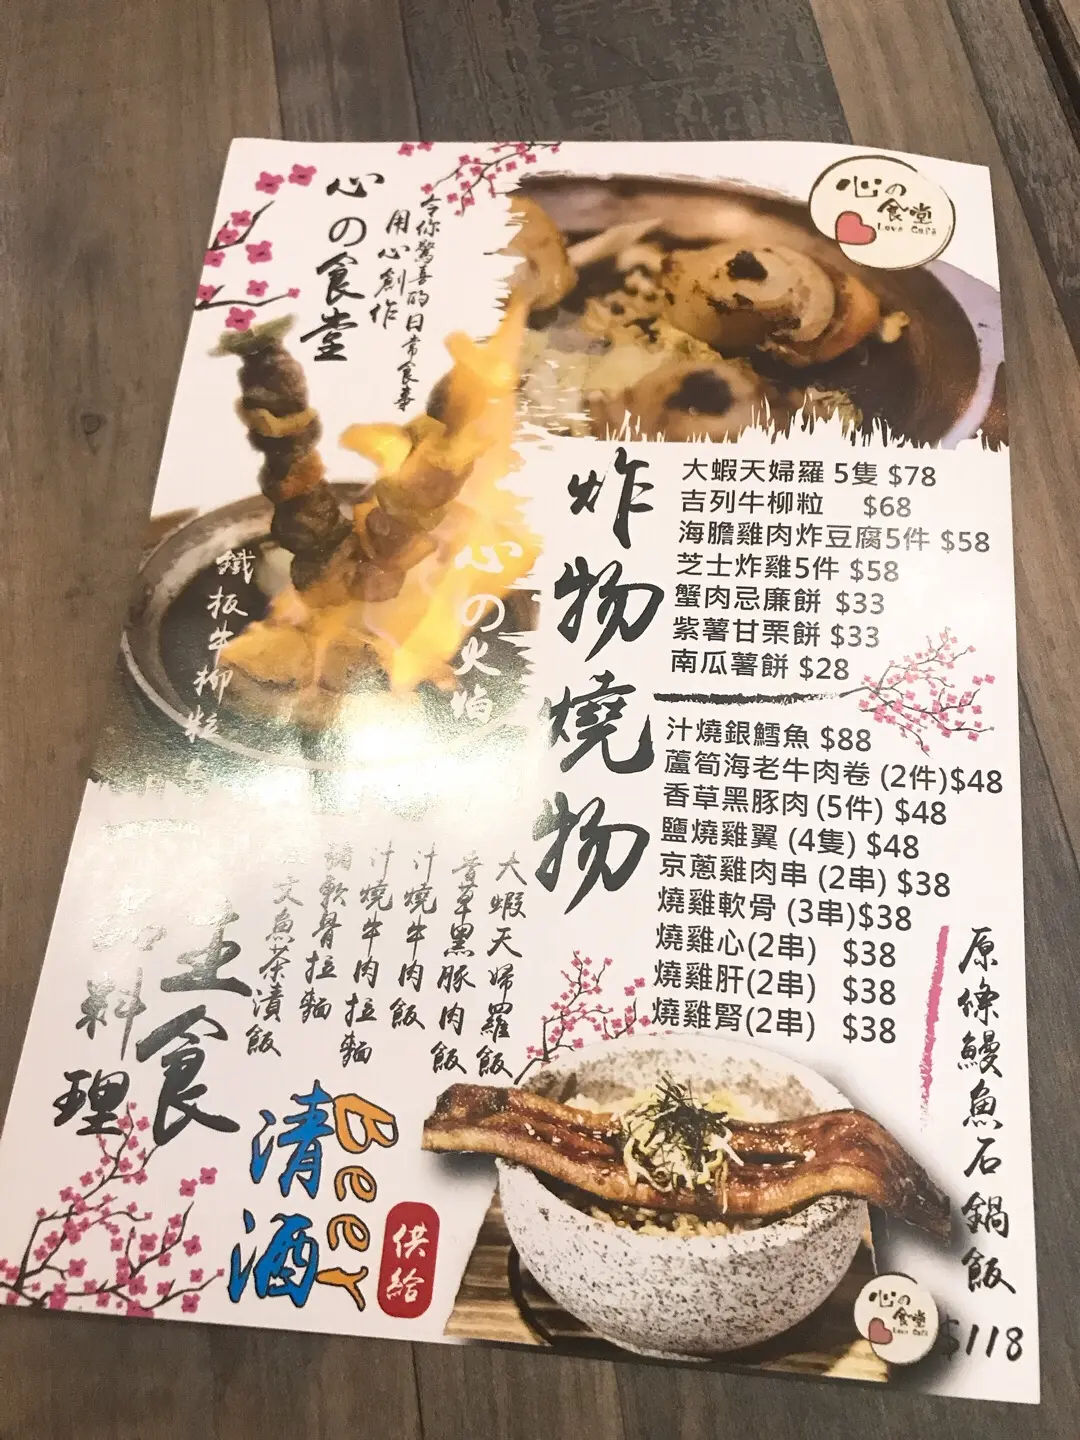 心の食堂
令你驚喜的日常食事
用心創作
心の
食堂
Love Café
鐵板牛柳粒
心の火焰
炸物燒物
大蝦天婦羅 5隻 $78
吉列牛柳粒 $68
海膽雞肉炸豆腐5件 $58
芝士炸雞5件 $58
蟹肉忌廉餅 $33
紫薯甘栗餅 $33
南瓜薯餅 $28
汁燒銀鱈魚 $88
蘆筍海老牛肉卷 (2件)$48
香草黑豚肉 (5件) $48
鹽燒雞翼 (4隻) $48
京蔥雞肉串 (2串) $38
燒雞軟骨 (3串)$38
燒雞心(2串) $38
燒雞肝(2串) $38
燒雞腎(2串) $38
大蝦天婦羅飯
香草黑豚肉飯
汁燒牛肉飯
汁燒牛肉拉麵
軟骨拉麵
文魚茶漬飯
主食
料理
清酒
Beer
供給
原條鰻魚石鍋飯
$118
心の
食堂
Love Café